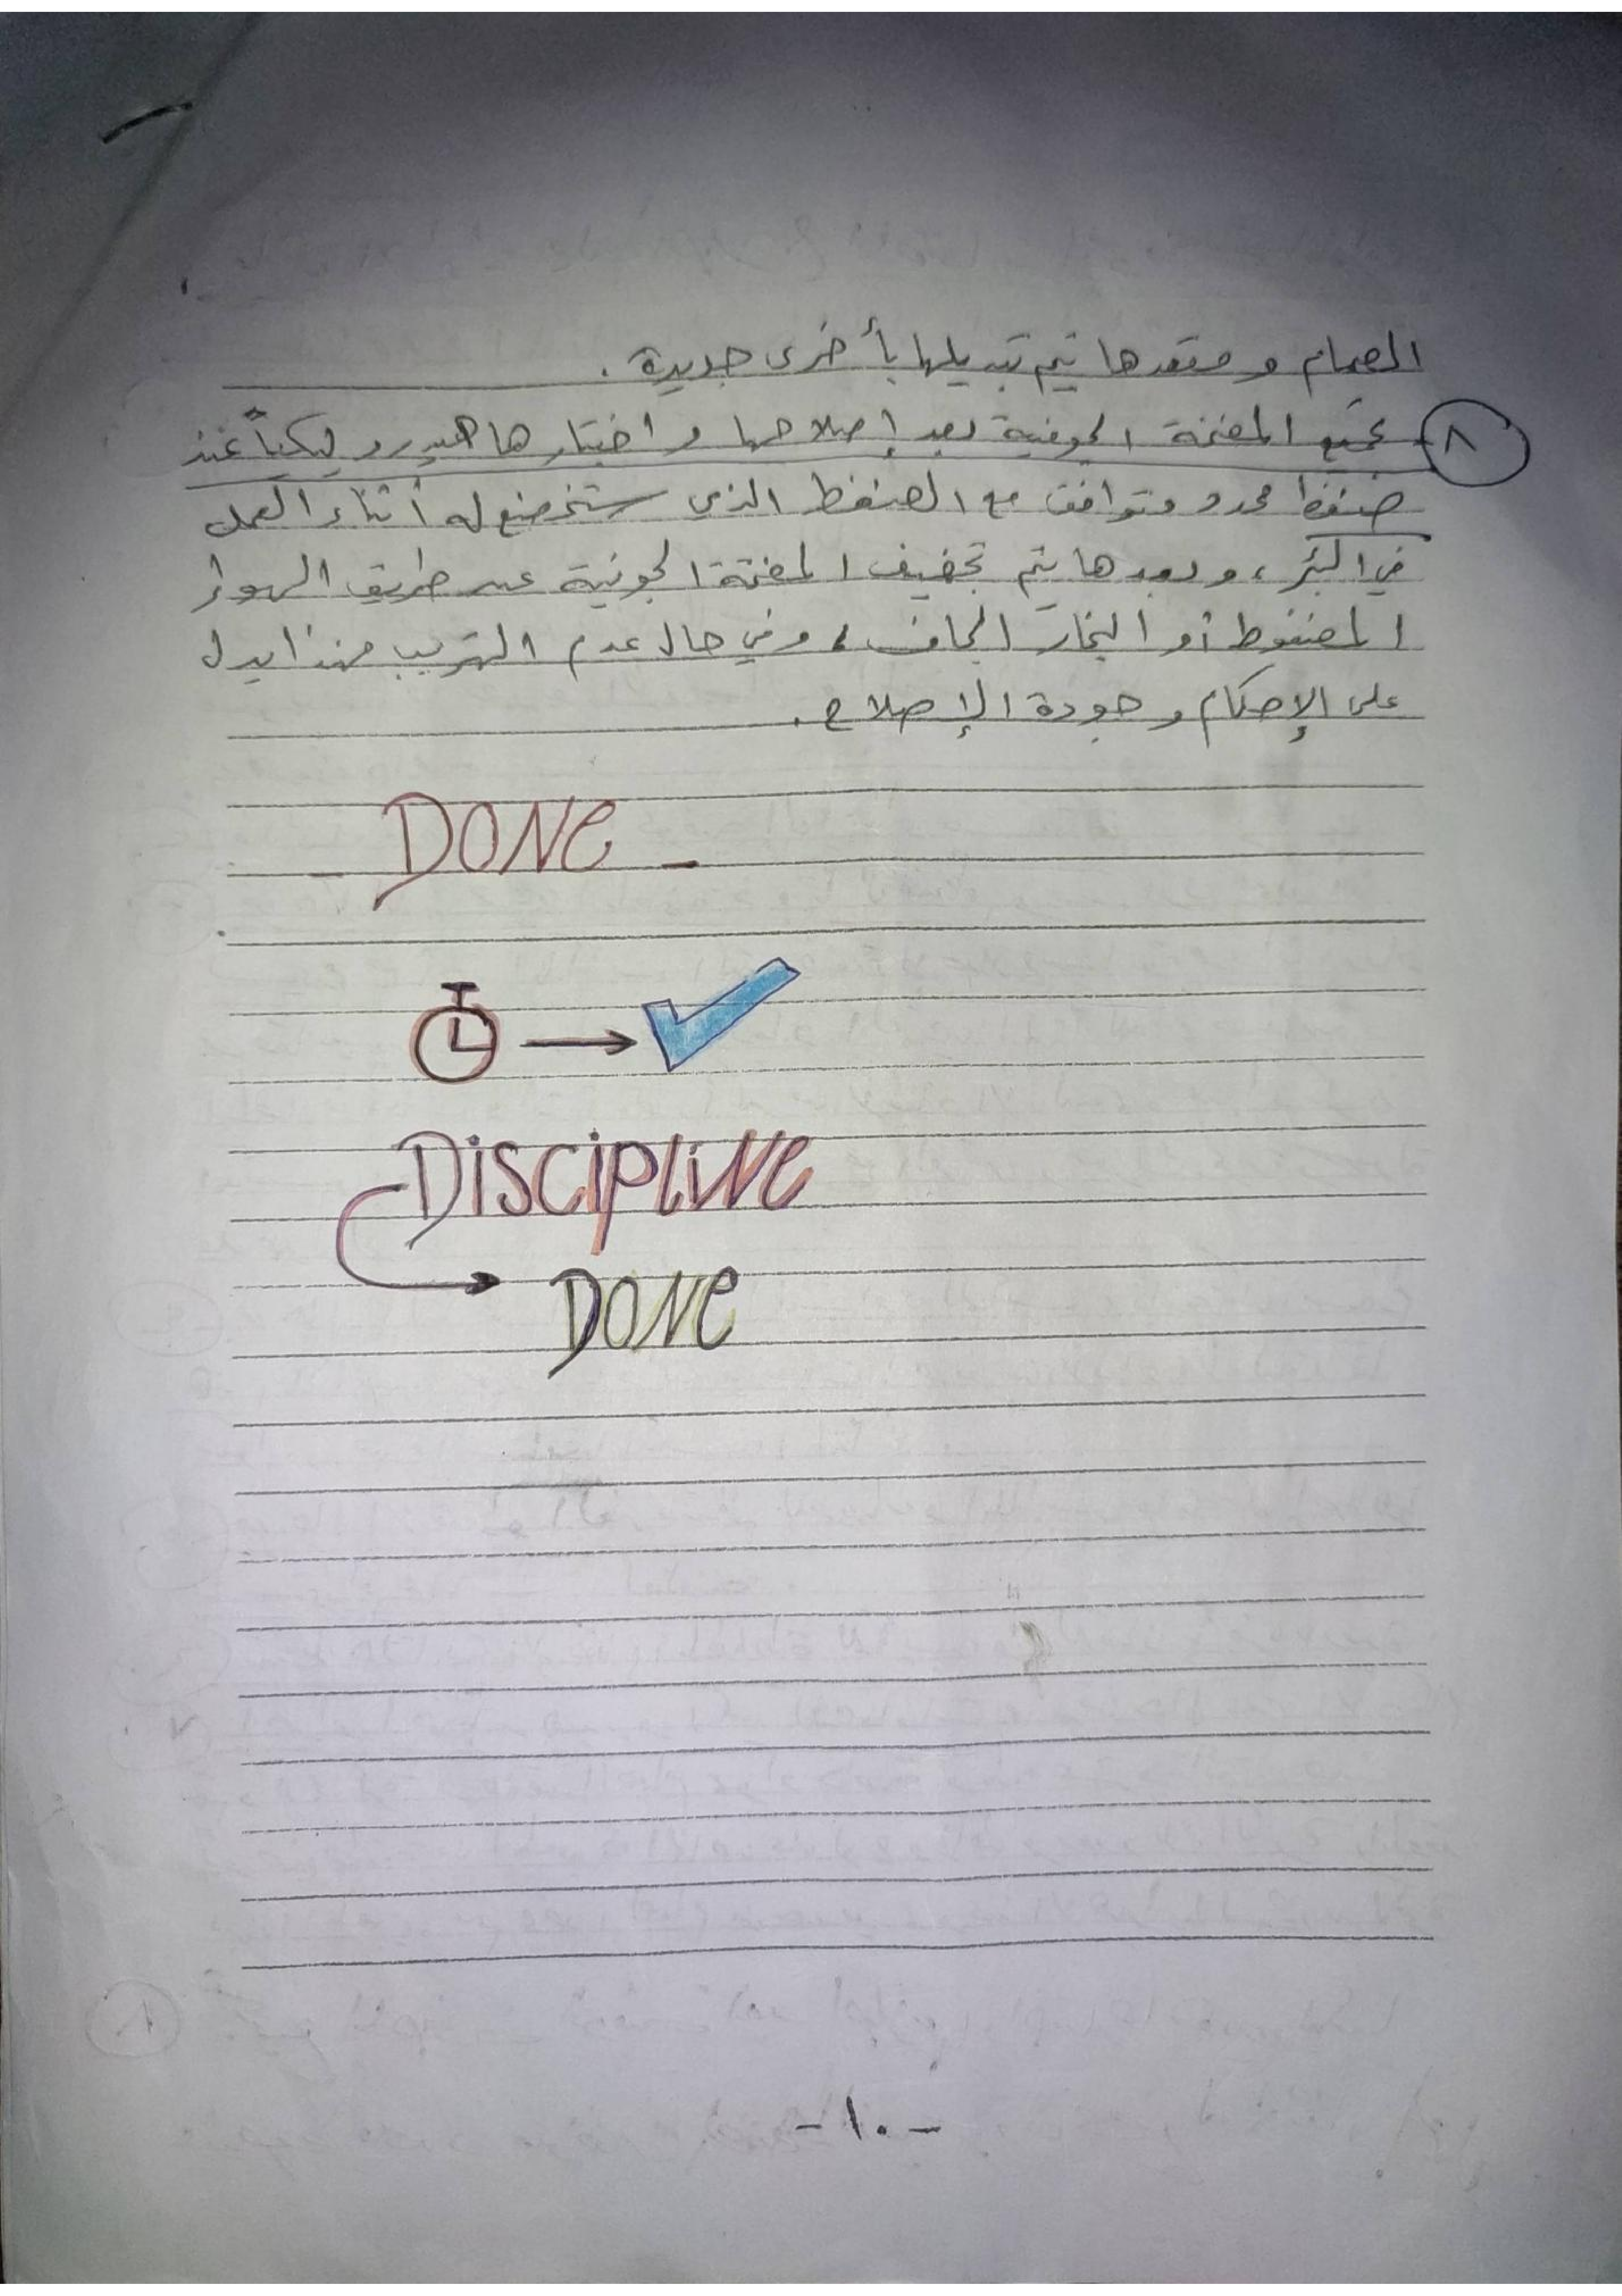 الصمام ومقعدها يتم تبديلها بأخرى جديدة .
٨ تجمّع المضخة الجوفية بعد إصلاحها واختبارها هيدروليكياً عند
ضغط محدد ومتوافق مع الضغط الذي ستخضع له أثناء العمل
في البئر ، وبعدها يتم تجفيف المضخة الجوفية عبر طريق الهواء
المضغوط أو البخار الجاف ، وفي حال عدم التهريب فهذا يدل
على الإحكام وجودة الإصلاح .
- DONE -
DISCIPLINE
DONE
- ١٠ -